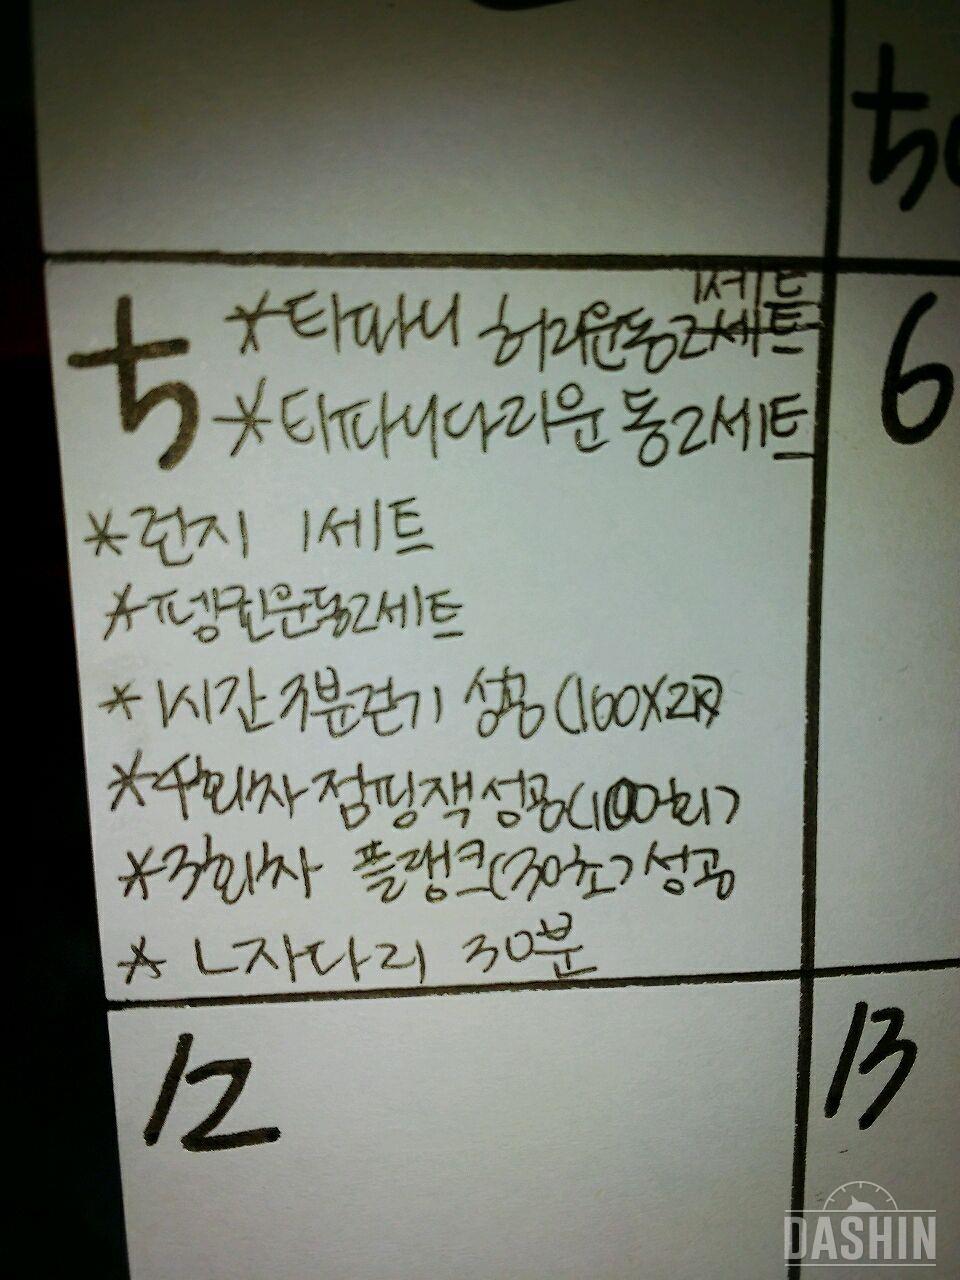 5
1세트
*타파니 허리운동2세트
*타파니다리운동2세트
*런지 1세트
*펭귄운동2세트
*1시간 7분걷기 성공(160X2K)
*4회차 점핑잭성공(100회)
*3회차 플랭크(30초)성공
*L자다리 30분
6
12
13
DASHIN